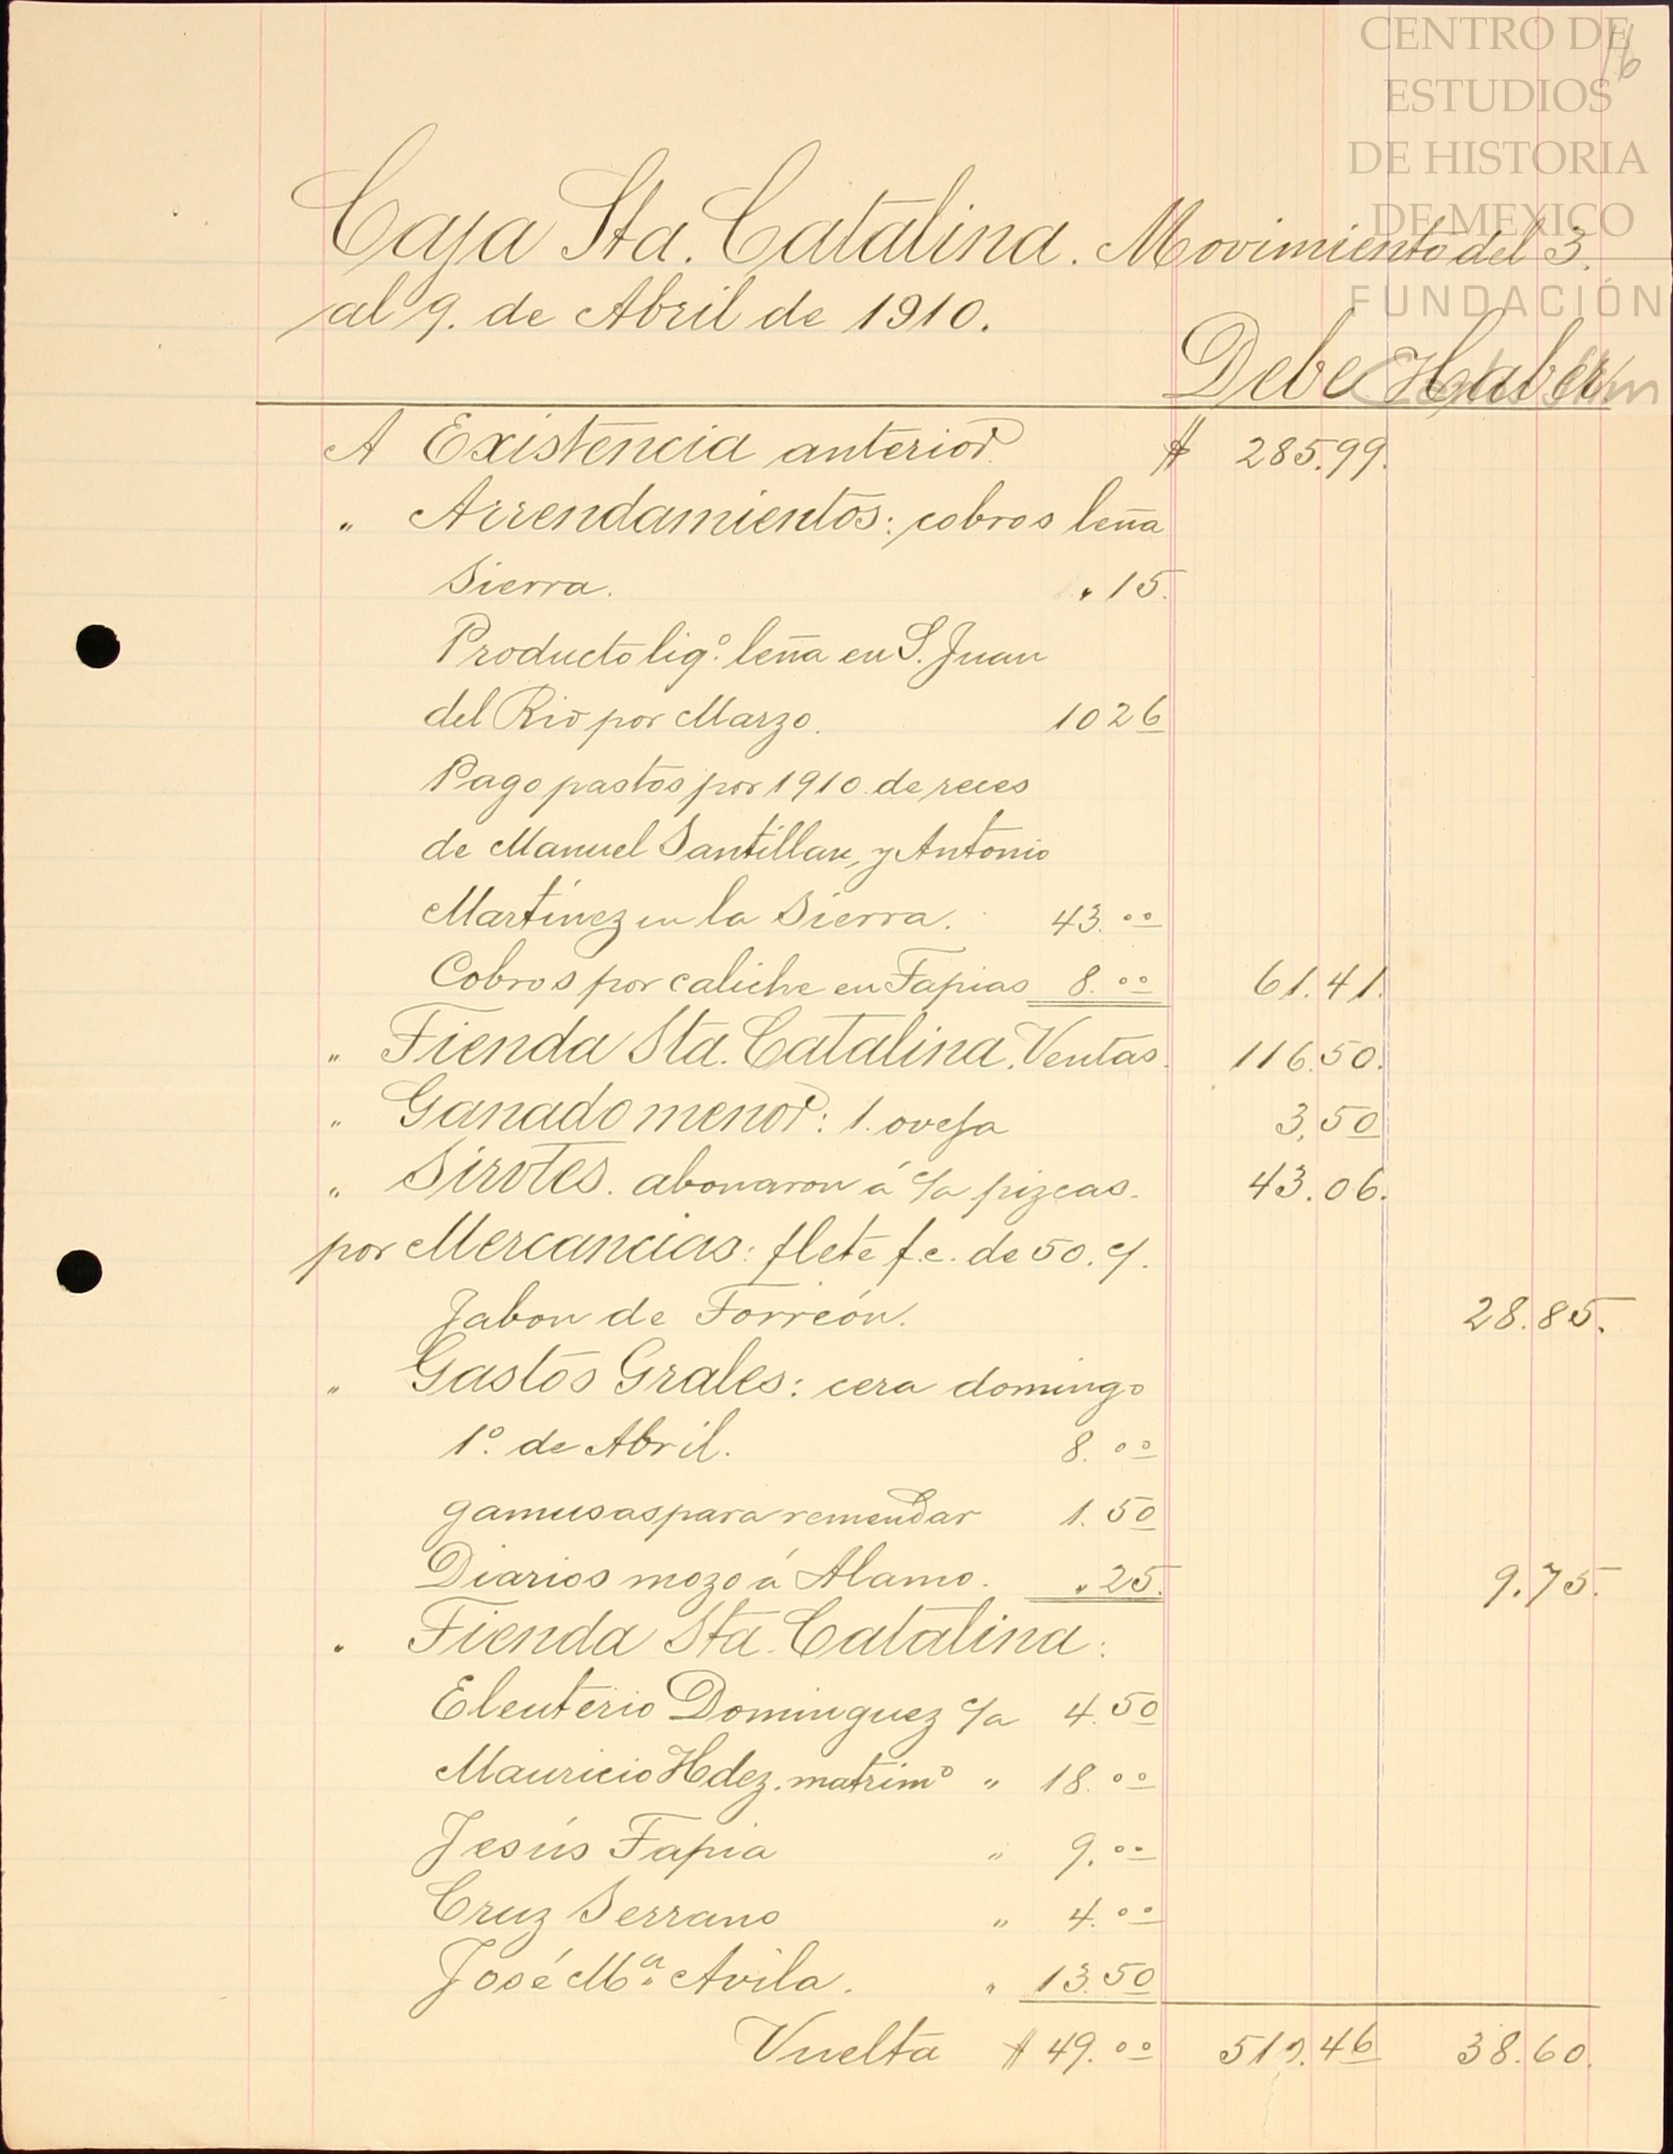 CENTRO DE
ESTUDIOS
DE HISTORIA
DE MEXICO
FUNDACIÓN
16
Caja Sta. Catalina. Movimiento del 3.
al 9. de Abril de 1910.
Debe Haber
A Existencia anterior $ 285.99.
" Arrendamientos: cobros leña
Sierra. " 15.
Producto liqº. leña en S. Juan
del Rio por Marzo. 10 26
Pago pastos por 1910 de reces
de Manuel Santillan, y Antonio
Martinez en la Sierra. 43.00
Cobros por caliche en Tapias 8.00 61.41.
" Tienda Sta. Catalina. Ventas. 116.50.
" Ganado menor: 1. oveja 3.50
" Sirvtes. abonaron á c/a pizcas. 43.06.
por Mercancias: flete f.c. de 50. c/.
Jabon de Torreón. 28.85.
" Gastos Grales: cera domingo
1º. de Abril. 8.00
gamusas para remendar 1.50
Diarios mozo á Alamo. " 25. 9.75.
" Tienda Sta. Catalina:
Eleuterio Dominguez c/a 4.50
Mauricio Hdez. matrimº " 18.00
Jesús Tapia " 9.00
Cruz Serrano " 4.00
José Mª. Avila. " 13.50
Vuelta $ 49.00 510.46 38.60.